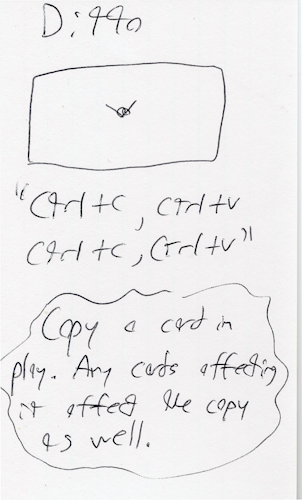 Ditto
"Ctrl+c, Ctrl+v
Ctrl+c, Ctrl+v"
Copy a card in
play. Any cards affecting
it affect the copy
as well.